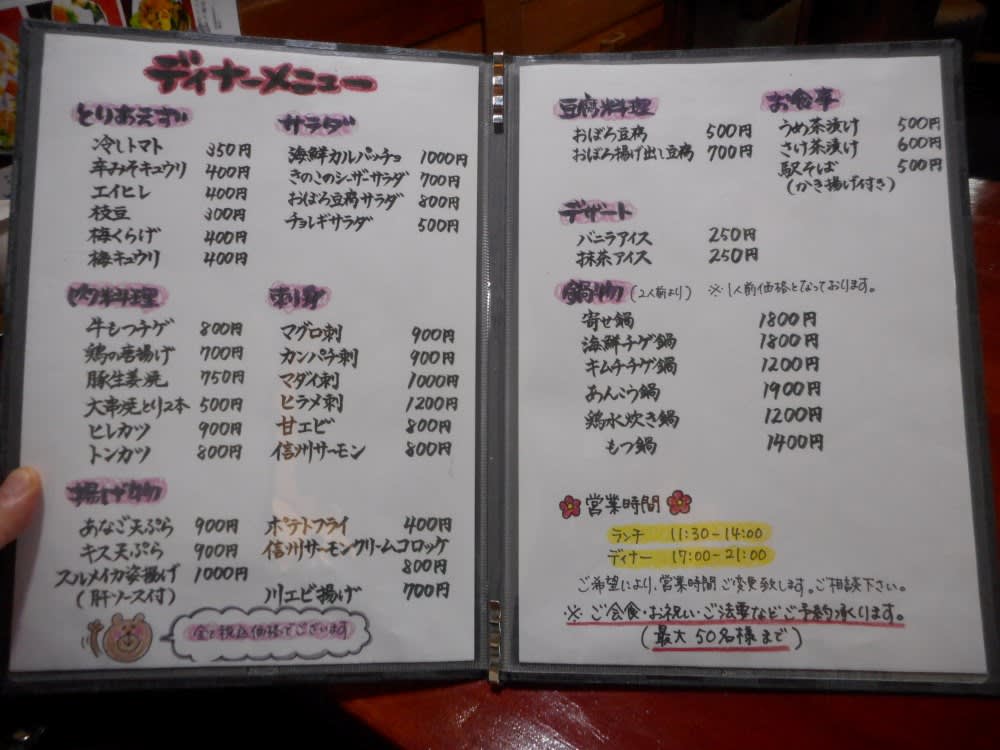 ディナーメニュー
とりあえず
冷しトマト 350円
辛みそキュウリ 400円
エイヒレ 400円
枝豆 300円
梅くらげ 400円
梅キュウリ 400円
サラダ
海鮮カルパッチョ 1000円
きのこのシーザーサラダ 700円
おぼろ豆腐サラダ 800円
チョレギサラダ 500円
肉料理
牛もつチゲ 800円
鶏の唐揚げ 700円
豚生姜焼 750円
大串焼とり2本 500円
ヒレカツ 900円
トンカツ 800円
刺身
マグロ刺 900円
カンパチ刺 900円
マダイ刺 1000円
ヒラメ刺 1200円
甘エビ 800円
信州サーモン 800円
揚げ物
あなご天ぷら 900円
キス天ぷら 900円
スルメイカ姿揚げ 1000円
(肝ソース付)
ポテトフライ 400円
信州サーモンクリームコロッケ
800円
川エビ揚げ 700円
全て税込価格でございます
豆腐料理
おぼろ豆腐 500円
おぼろ揚げ出し豆腐 700円
お食事
うめ茶漬け 500円
さけ茶漬け 600円
駅そば 500円
(かき揚げ付き)
デザート
バニラアイス 250円
抹茶アイス 250円
鍋物 (2人前より) ※1人前価格となっております。
寄せ鍋 1800円
海鮮チゲ鍋 1800円
キムチチゲ鍋 1200円
あんこう鍋 1900円
鶏水炊き鍋 1200円
もつ鍋 1400円
営業時間
ランチ 11:30-14:00
ディナー 17:00-21:00
ご希望により、営業時間ご変更致します。ご相談下さい。
※ご会食・お祝い・ご法要などご予約承ります。
(最大50名様まで)